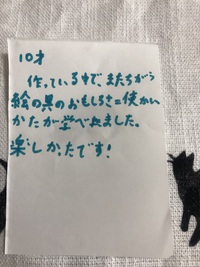 10才
作っている中で、またちがう
絵の具のおもしろさ=使かい
かたが学べれました。
楽しかたです!